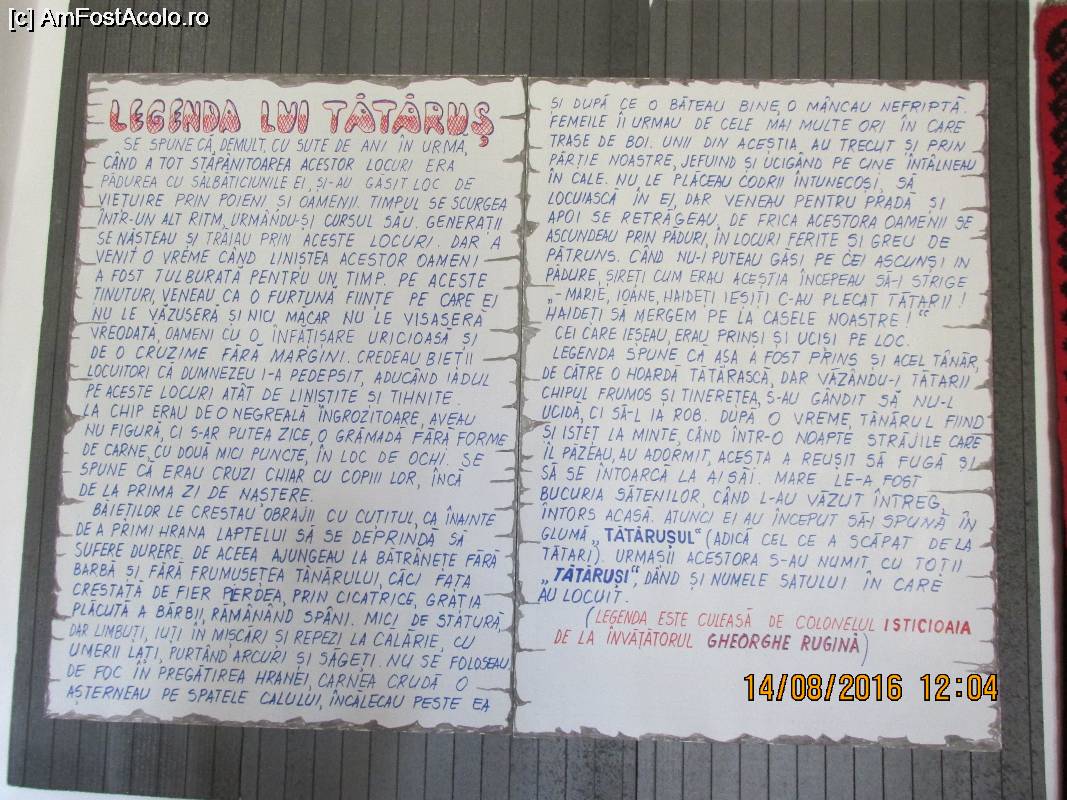 [c] AmFostAcolo.ro
LEGENDA LUI TĂTĂRUŞ
SE SPUNE CĂ, DEMULT, CU SUTE DE ANI ÎN URMĂ,
CÂND A TOT STĂPÂNITOAREA ACESTOR LOCURI ERA
PĂDUREA CU SĂLBĂTICIUNILE EI, ŞI-AU GĂSIT LOC DE
VIEŢUIRE PRIN POIENI ŞI OAMENII. TIMPUL SE SCURGEA
ÎNTR-UN ALT RITM, URMÂNDU-ŞI CURSUL SĂU. GENERAŢII
SE NĂŞTEAU ŞI TRĂIAU PRIN ACESTE LOCURI. DAR A
VENIT O VREME CÂND LINIŞTEA ACESTOR OAMENI
A FOST TULBURATĂ PENTRU UN TIMP. PE ACESTE
ŢINUTURI, VENEAU CA O FURTUNĂ FIINŢE PE CARE EI
NU LE VĂZUSERĂ ŞI NICI MĂCAR NU LE VISASERĂ
VREODATĂ, OAMENI CU O ÎNFĂŢIŞARE URICIOASĂ ŞI
DE O CRUZIME FĂRĂ MARGINI. CREDEAU BIEŢII
LOCUITORI CĂ DUMNEZEU I-A PEDEPSIT, ADUCÂND IADUL
PE ACESTE LOCURI ATÂT DE LINIŞTITE ŞI TIHNITE.
LA CHIP ERAU DE O NEGREALĂ ÎNGROZITOARE, AVEAU
NU FIGURĂ, CI S-AR PUTEA ZICE, O GRĂMADĂ FĂRĂ FORME
DE CARNE, CU DOUĂ MICI PUNCTE, ÎN LOC DE OCHI. SE
SPUNE CĂ ERAU CRUZI CHIAR CU COPIII LOR, ÎNCĂ
DE LA PRIMA ZI DE NAŞTERE.
BĂIEŢILOR LE CRESTAU OBRAJII CU CUŢITUL, CA ÎNAINTE
DE A PRIMI HRANA LAPTELUI SĂ SE DEPRINDĂ SĂ
SUFERE DURERE. DE ACEEA AJUNGEAU LA BĂTRÂNEŢE FĂRĂ
BARBĂ ŞI FĂRĂ FRUMUSEŢEA TÂNĂRULUI, CĂCI FAŢA
CRESTATĂ DE FIER PIERDEA, PRIN CICATRICE, GRAŢIA
PLĂCUTĂ A BĂRBII, RĂMÂNÂND SPÂNI. MICI DE STATURĂ,
DAR LIMBUŢI, IUŢI ÎN MIŞCĂRI ŞI REPEZI LA CĂLĂRIE, CU
UMERII LAŢI, PURTÂND ARCURI ŞI SĂGEŢI. NU SE FOLOSEAU
DE FOC ÎN PREGĂTIREA HRANEI, CARNEA CRUDĂ O
AŞTERNEAU PE SPATELE CALULUI, ÎNCĂLECAU PESTE EA
ŞI DUPĂ CE O BĂTEAU BINE, O MÂNCAU NEFRIPTĂ.
FEMEILE ÎI URMAU DE CELE MAI MULTE ORI ÎN CARE
TRASE DE BOI. UNII DIN ACEŞTIA AU TRECUT ŞI PRIN
PĂRŢIE NOASTRE, JEFUIND ŞI UCIGÂND PE CINE ÎNTÂLNEAU
ÎN CALE. NU, LE PLĂCEAU CODRII ÎNTUNECOŞI, SĂ
LOCUIASCĂ ÎN EI, DAR VENEAU PENTRU PRADĂ ŞI
APOI SE RETRĂGEAU, DE FRICA ACESTORA OAMENII SE
ASCUNDEAU PRIN PĂDURI, ÎN LOCURI FERITE ŞI GREU DE
PĂTRUNS. CÂND NU-I PUTEAU GĂSI PE CEI ASCUNŞI ÎN
PĂDURE, ŞIREŢI CUM ERAU ACEŞTIA ÎNCEPEAU SĂ-I STRIGE
„- MARIE, IOANE, HAIDEŢI IEŞIŢI C-AU PLECAT TĂTARII !
HAIDEŢI SĂ MERGEM PE LA CASELE NOASTRE ! “
CEI CARE IEŞEAU, ERAU PRINŞI ŞI UCIŞI PE LOC.
LEGENDA SPUNE CĂ AŞA A FOST PRINS ŞI ACEL TÂNĂR,
DE CĂTRE O HOARDĂ TĂTĂRASCĂ, DAR VĂZÂNDU-I TĂTARII
CHIPUL FRUMOS ŞI TINEREŢEA, S-AU GÂNDIT SĂ NU-L
UCIDĂ, CI SĂ-L IA ROB. DUPĂ O VREME, TÂNĂRUL FIIND
ŞI ISTEŢ LA MINTE, CÂND ÎNTR-O NOAPTE STRĂJILE CARE
ÎL PĂZEAU, AU ADORMIT, ACESTA A REUŞIT SĂ FUGĂ ŞI
SĂ SE ÎNTOARCĂ LA AI SĂI. MARE LE-A FOST
BUCURIA SĂTENILOR, CÂND L-AU VĂZUT ÎNTREG,
ÎNTORS ACASĂ. ATUNCI EI AU ÎNCEPUT SĂ-I SPUNĂ ÎN
GLUMĂ „TĂTĂRUŞUL“ (ADICĂ CEL CE A SCĂPAT DE LA
TĂTARI). URMAŞII ACESTORA S-AU NUMIT, CU TOŢII
„TĂTĂRUŞI“, DÂND ŞI NUMELE SATULUI ÎN CARE
AU LOCUIT.
(LEGENDA ESTE CULEASĂ DE COLONELUL ISTICIOAIA
DE LA ÎNVĂŢĂTORUL GHEORGHE RUGINĂ)
14/08/2016 12:04